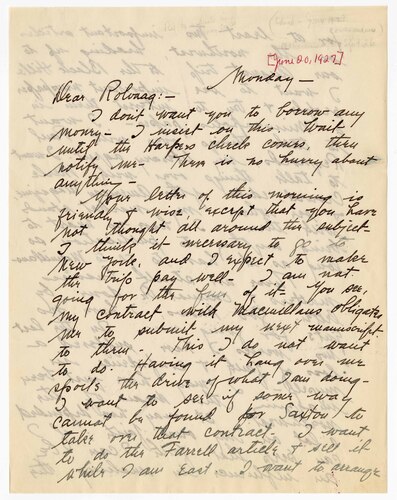 [June 20, 1927]
Monday—
Dear Rolvaag:—
I don't want you to borrow any
money— I insist on this. Wait
until the Harpers check comes, then
notify me. There is no hurry about
anything—
Your letter of this morning is
friendly & wise, except that you have
not thought all around the subject.
I think it necessary to go to
New York, and I expect to make
the trip pay well— I am not
going for the fun of it— You see,
my contract with Macmillans obligates
me to submit my next manuscript
to them. This I do not want
to do. Having it hang over me
spoils the drive of what I am doing—
I want to see if some way
cannot be found for Saxton to
take over that contract. I want
to do the Farrell article & sell it
while I am East. I want to arrange